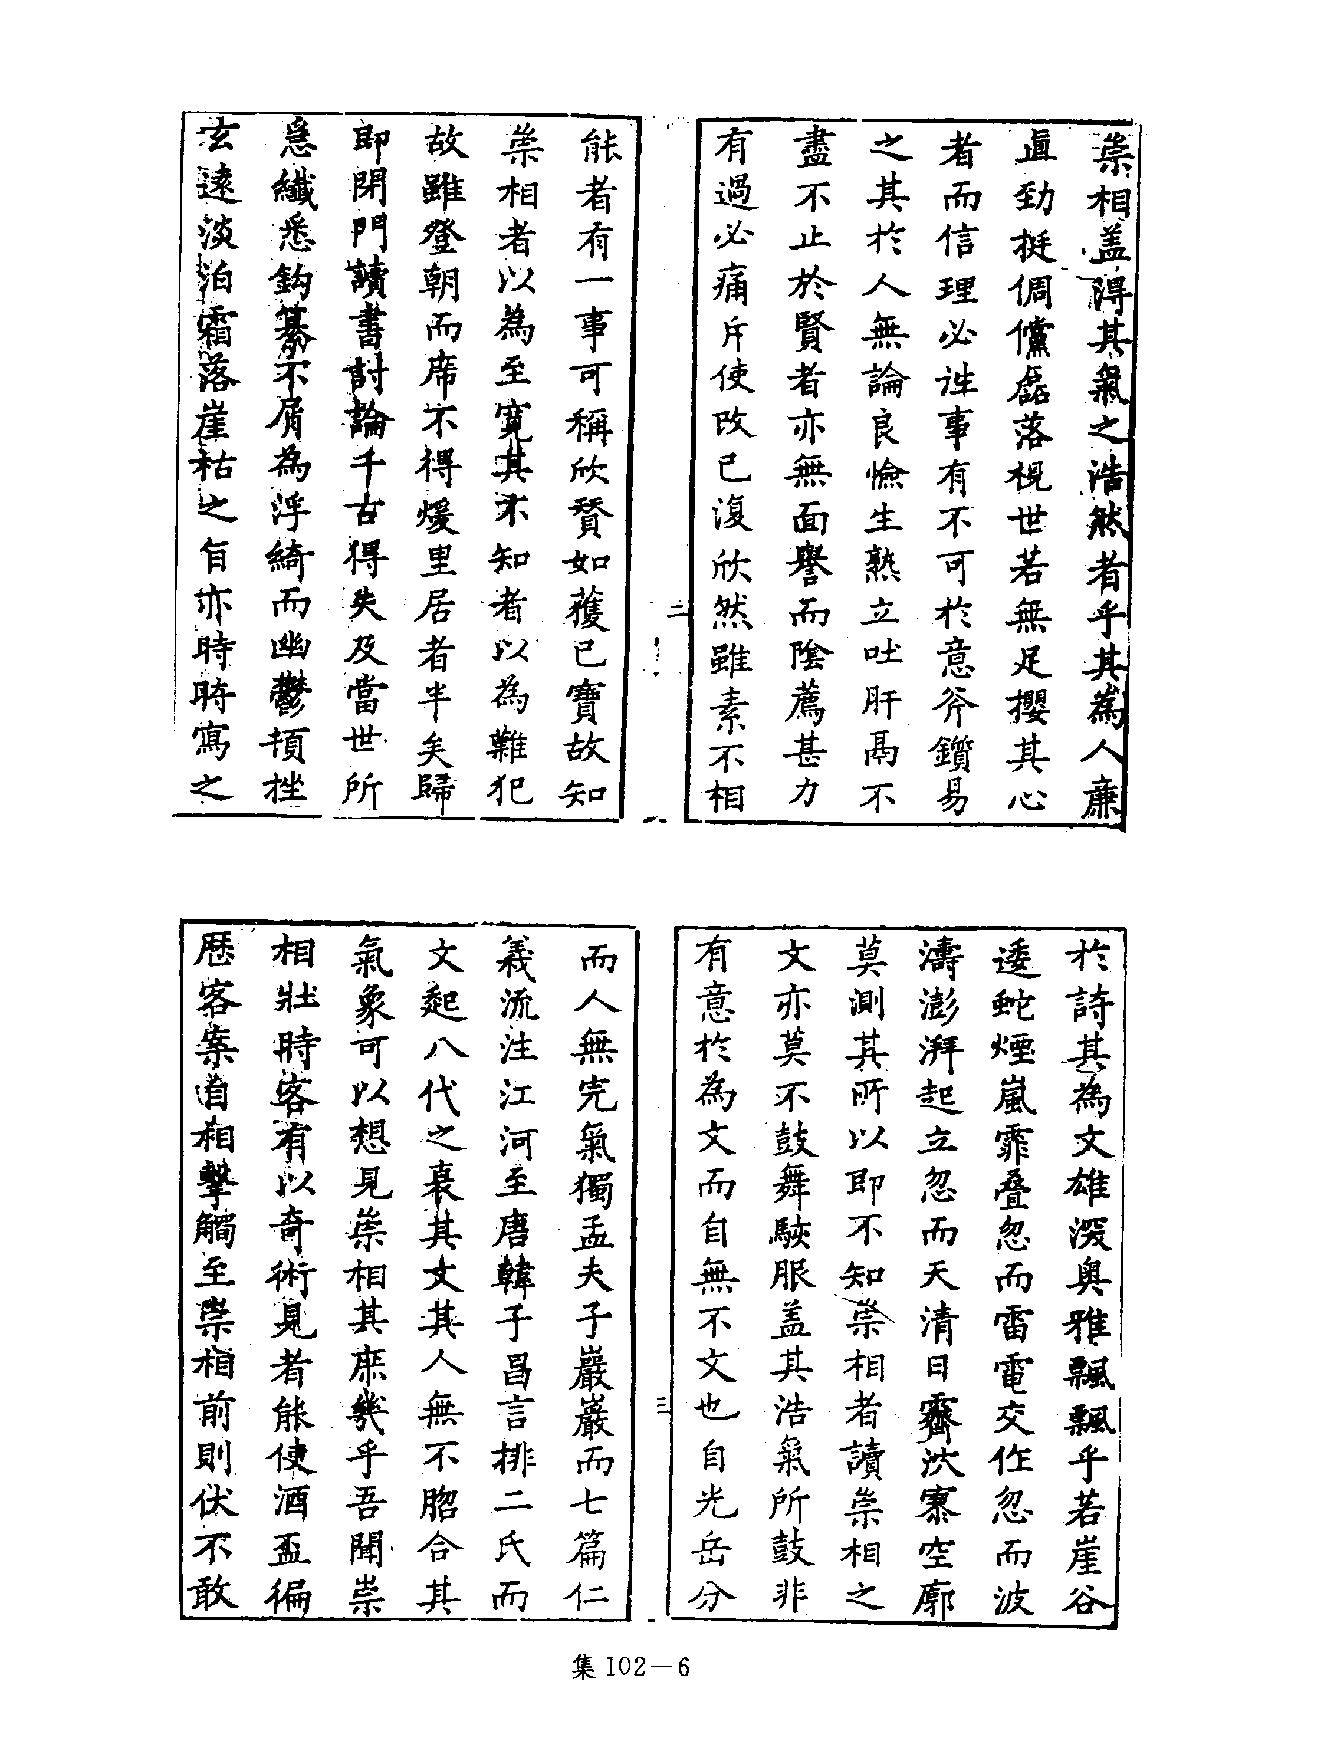 崇相盖得其氣之浩然者乎其為人廉
直勁挺倜儻磊落視世若無足攖其心
者而信理必誰事有不可於意斧鑕易
之其於人無論良憸生熟立吐肝鬲不
盡不止於賢者亦無面譽而陰薦甚力
有過必痛斥使改已復欣然雖素不相
能者有一事可稱欣賛如獲已寶故知
崇相者以為至寬其不知者以為難犯
故雖登朝而席不得煖里居者半矣歸
即閉門讀書討論千古得失及當世所
急纖悉鈎纂不屑為浮綺而幽鬱頓挫
玄遠淡泊霜落崖枯之旨亦時時寫之
二
於詩其為文雄深奥雅飄飄乎若崖谷
逶蛇煙嵐霏叠忽而雷電交作忽而波
濤澎湃起立忽而天清日霽泬寥空廓
莫測其所以即不知崇相者讀崇相之
文亦莫不鼓舞駭服盖其浩氣所鼓非
有意於為文而自無不文也自光岳分
而人無完氣獨孟夫子巖巖而七篇仁
義流注江河至唐韓子昌言排二氏而
文起八代之衰其文其人無不脗合其
氣象可以想見崇相其庶幾乎吾聞崇
相壯時客有以奇術見者能使酒盃徧
歷客案自相擊觸至崇相前則伏不敢
三
集102—6